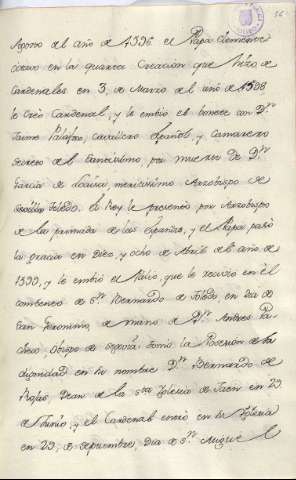 36
Agosto del año de 1596 el Papa Clemente
octavo en la quarta Creacion que hizo de
Cardenales en 3, de Marzo del año de 1598
le creò Cardenal, y le embiò el bonete con Dn.
Jaume Palafox, cavallero Español, y Camarero
Secreto de Su Santissimo, por muerte de Dn.
Garcia de Loaisa, meritissimo Arzobispo de
Toledo. el Rey le presentò por Arzobispo
de la primada de las Españas, y el Papa pasò
la gracia en Diez, y ocho de Abril del año de
1599, y le embiò el Palio, que le reciviò en el
combento de Sn. Bernardo de Toledo, en dia de
San Geronimo, de mano de Dn. Andres Pa-
checo, Obispo de Segovia. tomò la Posesion de la
dignidad en su nombre Dn. Bernardo de
Rojas, Dean de la Sta. Iglesia de Jaen en 29
de Junio, y el Cardenal entrò en su Iglesia
en 29, de Septiembre, Dia de Sn. Miguel